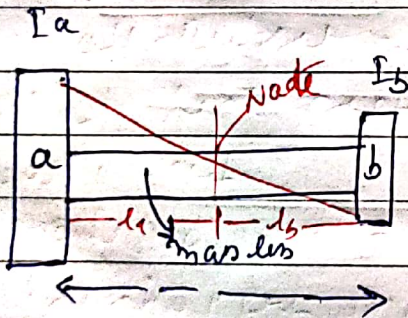 Ia
Node
Ib
a
b
la
lb
massless